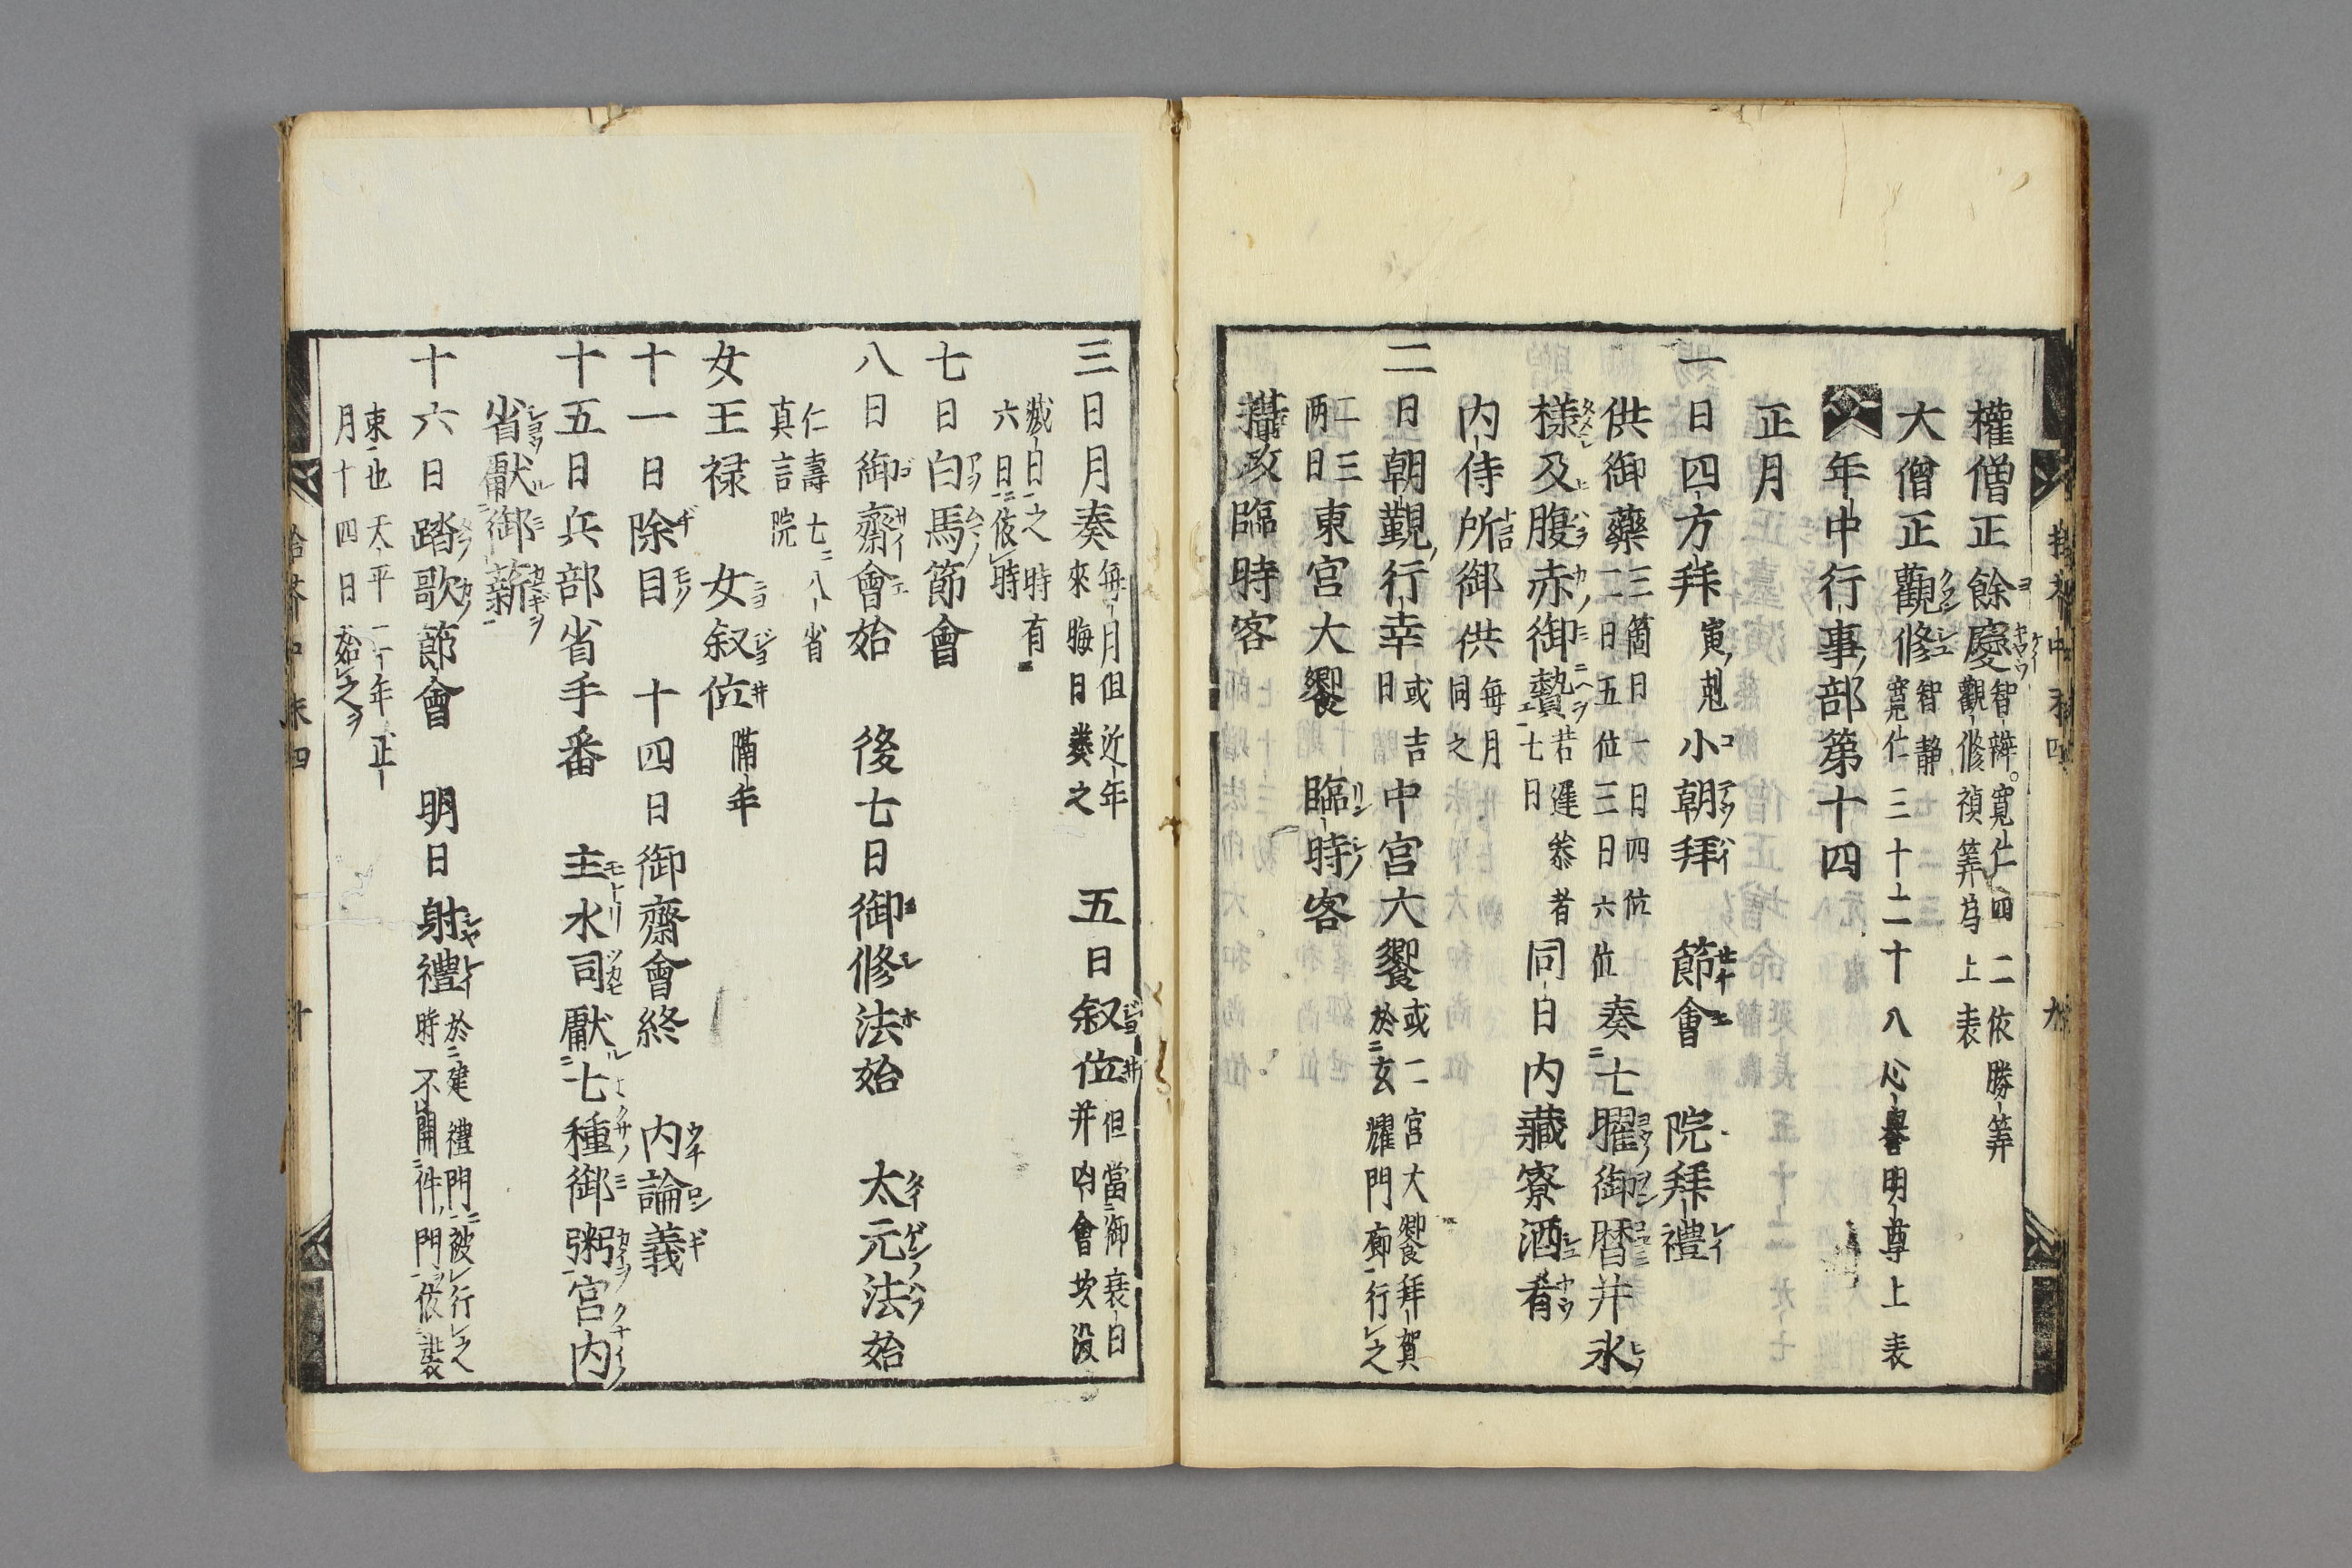 權僧正餘慶 智辨。寛仁四二依勝筭
觀修禎筭為上表
大僧正觀修 智靜
寛仁 三十二十八心譽明尊上表
年中行事部第十四
正月
一日四方拜 寅剋 小朝拜 節會 院拜禮
供御藥 三箇日一日四位
二日五位三日六位 奏七曜御暦并氷
樣及腹赤御贄 若遲參者
七日 同日内藏寮酒肴
内侍所御供 每月
同之
二日朝覲行幸 或吉
日 中宮大饗 或二宮大饗拜賀
於玄耀門廊行之
二三
两日 東宮大饗 臨時客
攝政臨時客
三日月奏 每月但近年
來晦日奏之 五日叙位 但當御衰日
并凶會坎没
滅日之時有
六日依時
七日白馬節會
八日御齋會始 後七日御修法始 太元法始
仁壽七八省
真言院
女王禄 女叙位 隔年
十一日除目 十四日御齋會終 内論義
十五日兵部省手番 主水司獻七種御粥宮内
省獻御薪
十六日踏歌節會 明日射禮 於建禮門被行之
時不開件門依裝
束也天平二年正
月十四日始之